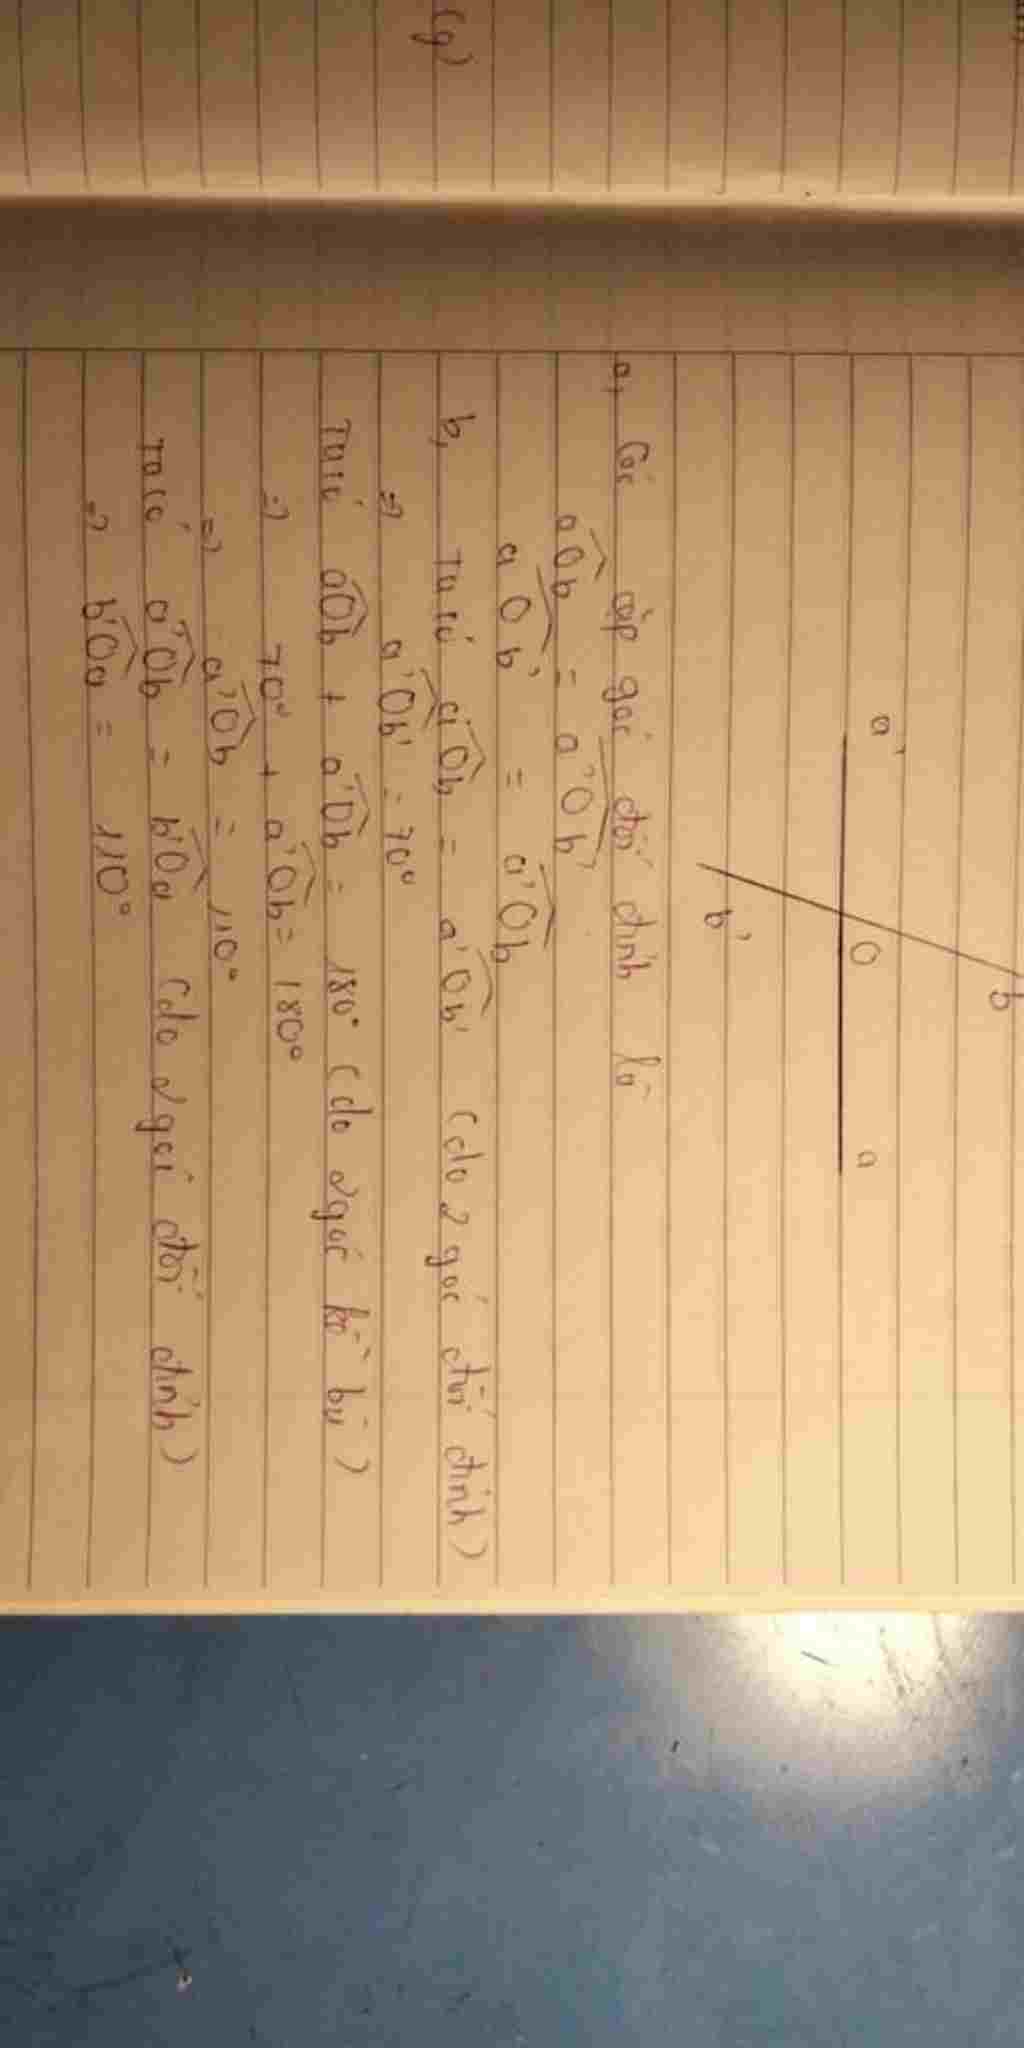 (g)
b
a'
O
a
b'
a, Các cặp góc đối đỉnh là
aOb = a'Ob'
aOb' = a'Ob
b, Ta có aOb = a'Ob' (do 2 góc đối đỉnh)
=> a'Ob' = 70°
Ta có aOb + a'Ob = 180° (do 2 góc kề bù)
=> 70° + a'Ob = 180°
=> a'Ob = 110°
Ta có a'Ob = b'Oa (do 2 góc đối đỉnh)
=> b'Oa = 110°